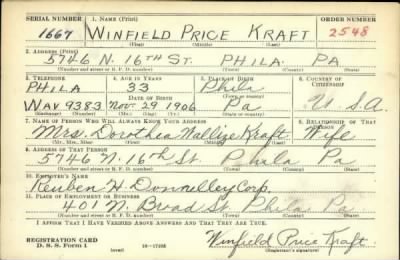 SERIAL NUMBER 1. NAME (Print) ORDER NUMBER
1667 WINFIELD PRICE KRAFT 2548
(First) (Middle) (Last)
2. ADDRESS (Print)
5746 N. 16TH ST. PHILA. PA
(Number and street or R. F. D. number) (Town) (County) (State)
3. TELEPHONE 4. AGE IN YEARS 5. PLACE OF BIRTH 6. COUNTRY OF CITIZENSHIP
PHILA 33 Phila
DATE OF BIRTH
WAV 9383 Nov. 29 1906 Pa U.S.A.
(Exchange) (Number) (Mo.) (Day) (Yr.) (State or country)
7. NAME OF PERSON WHO WILL ALWAYS KNOW YOUR ADDRESS 8. RELATIONSHIP OF THAT PERSON
Mrs. Dorothea Kraft. Wife
(Mr., Mrs., Miss) (First) (Middle) (Last)
9. ADDRESS OF THAT PERSON
5746 N. 16th St. Phila Pa
(Number and street or R. F. D. number) (Town) (County) (State)
10. EMPLOYER'S NAME
Reuben H. Donnelley Corp.
11. PLACE OF EMPLOYMENT OR BUSINESS
401 N. Broad St. Phila Pa
(Number and street or R. F. D. number) (Town) (County) (State)
I AFFIRM THAT I HAVE VERIFIED ABOVE ANSWERS AND THAT THEY ARE TRUE.
REGISTRATION CARD
D. S. S. Form 1 (over) 16—17105 Winfield Price Kraft.
(Registrant's signature)